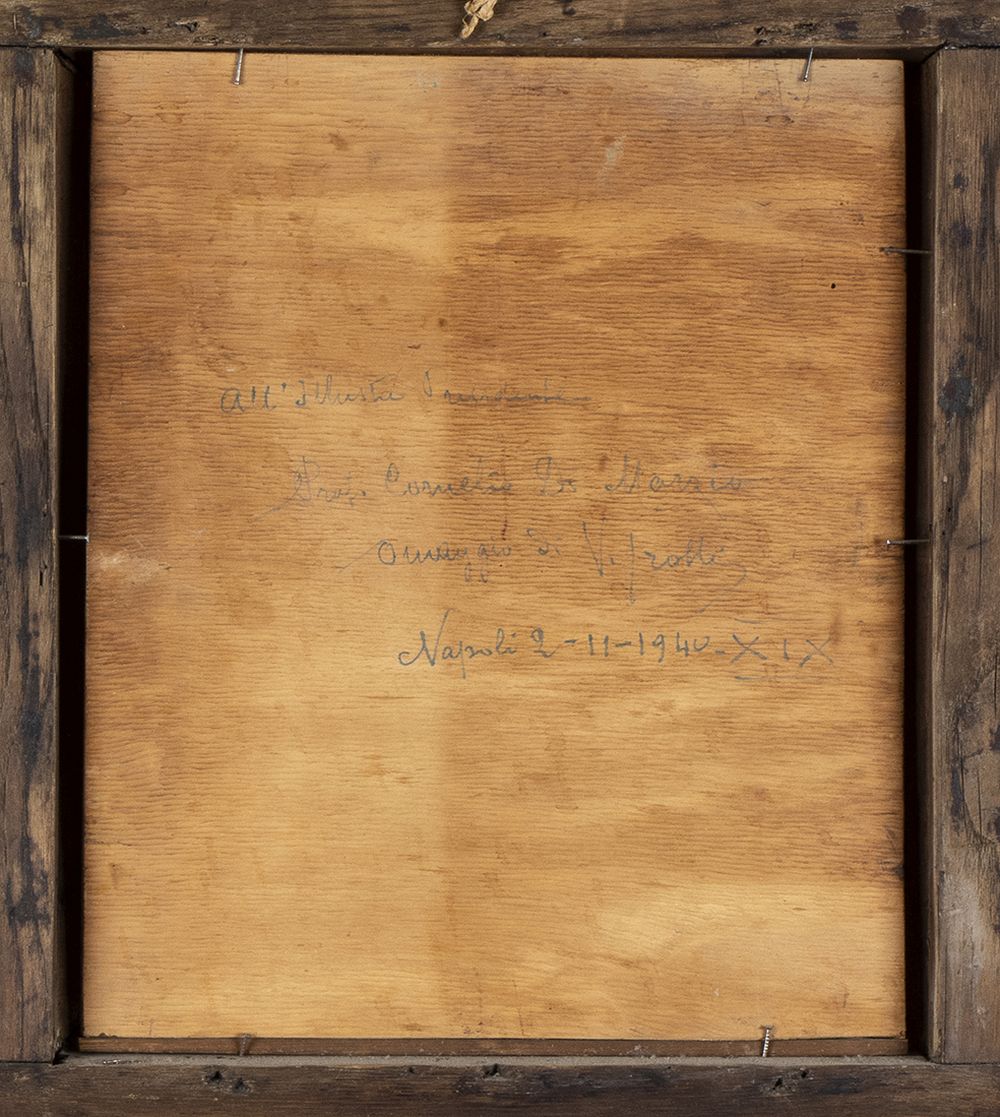 All' Illustre Presidente
Prof. Cornelio Di Marzio
Omaggio di V. Irolli
Napoli 2-11-1940-XIX